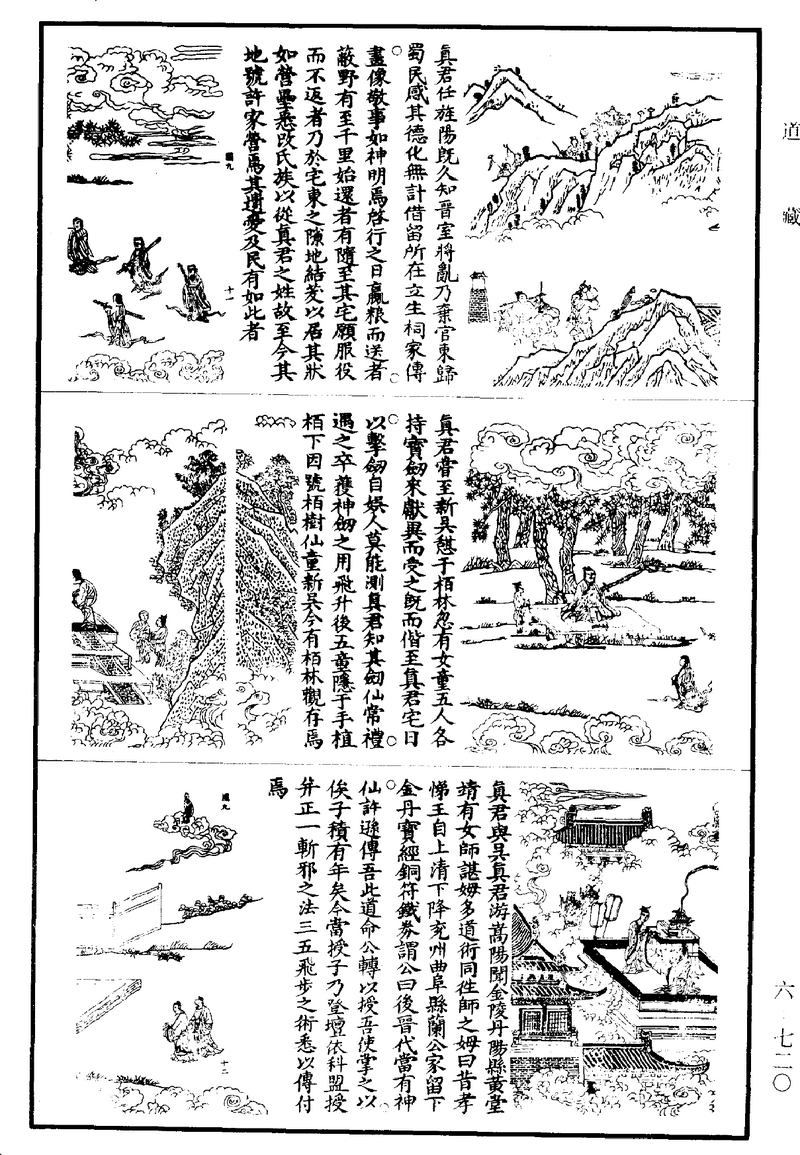 道藏
真君任旌陽旣久知晉室將亂乃棄官東歸
蜀民感其德化無計借留所在立生祠家傳
畫像敬事如神明焉啓行之日贏粮而送者
蔽野有至千里始還者有隨至其宅願服役
而不返者乃於宅東之隙地結茇以居其狀
如營壘悉改氏族以從真君之姓故至今其
地號許家營焉其遺愛及民有如此者
圖九
十一
真君嘗至新吳憇于栢林忽有女童五人各
持寶劒來獻異而受之旣而偕至真君宅日
以擊劒自娱人莫能測真君知其劒仙常禮
遇之卒獲神劒之用飛升後五童隱于手植
栢下因號栢樹仙童新吳今有栢林觀存焉
真君與吳真君游嵩陽聞金陵丹陽縣黃堂
靖有女師諶姆多道術同往師之姆曰昔孝
悌王自上清下降兖州曲阜縣蘭公家留下
金丹寶經銅符鐵券謂公曰後晉代當有神
仙許遜傳吾此道命公轉以授吾使掌之以
俟子積有年矣今當授子乃登壇依科盟授
并正一斬邪之法三五飛步之術悉以傳付
焉
圖九
十二
六 七二〇